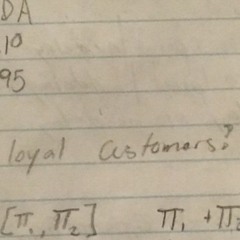 DA
10
95
loyal customers?
[π₁, π₂] π₁ + π₂